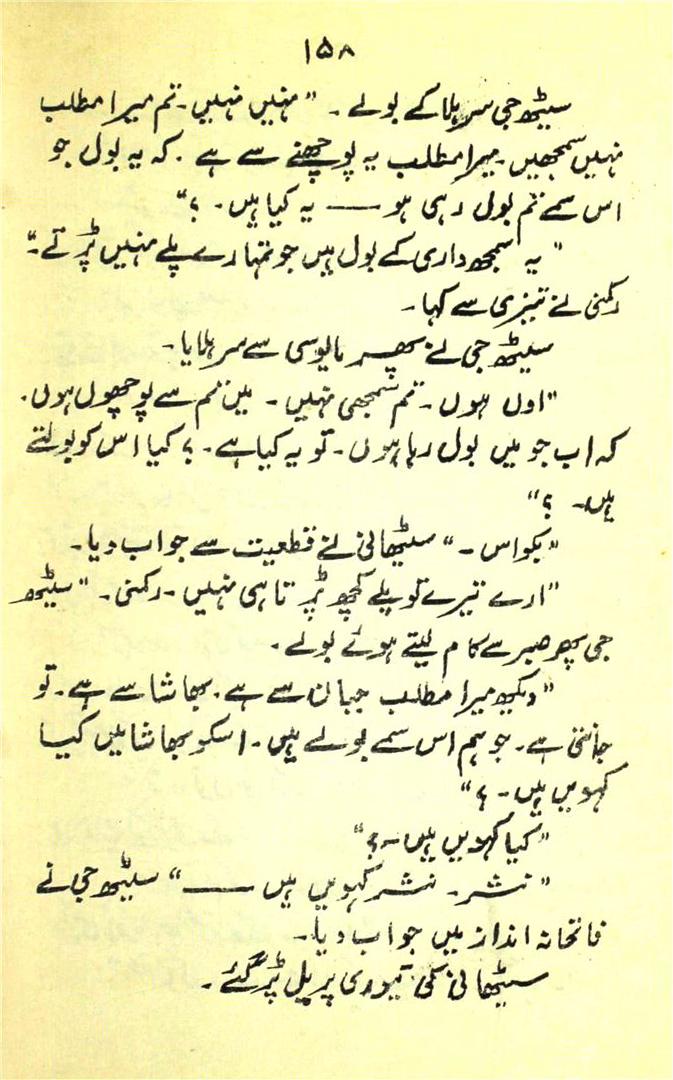 ۱۵۸
سیٹھ جی سر ہلا کے بولے ۔ "نہیں نہیں ۔ تم میرا مطلب
نہیں سمجھیں ۔ میرا مطلب یہ پوچھنے سے ہے ۔ کہ یہ بول جو
اس سمے تم بول رہی ہو —— یہ کیا ہیں ۔ ؟"
"یہ سمجھداری کے بول ہیں جو تمہارے پلے نہیں پڑتے ۔"
رکمنی نے تیزی سے کہا ۔
سیٹھ جی نے پھر مایوسی سے سر ہلایا ۔
"اوں ہوں ۔ تم سمجھی نہیں ۔ میں تم سے پوچھوں ہوں ۔
کہ اب جو میں بول رہا ہوں ۔ تو یہ کیا ہے ۔ ؟ کیا اس کو بولتے
ہیں ۔ ؟"
"بکواس ۔" سیٹھانی نے قطعیت سے جواب دیا ۔
"ارے تیرے تو پلے کچھ پڑتا ہی نہیں ۔ رکمنی ۔" سیٹھ
جی پھر صبر سے کام لیتے ہوئے بولے ۔
"دیکھ میرا مطلب جبان سے ہے ۔ بھاشا سے ہے ۔ تو
جانتی ہے ۔ جو ہم اس سمے بولے ہیں ۔ اسکو بھاشا میں کیا
کہویں ہیں ۔ ؟"
"کیا کہویں ہیں ۔ ؟"
"نشر ۔ نشر کہویں ہیں ——" سیٹھ جی نے
فاتحانہ انداز میں جواب دیا ۔
سیٹھانی کی تیوری پر بل پڑ گئے ۔